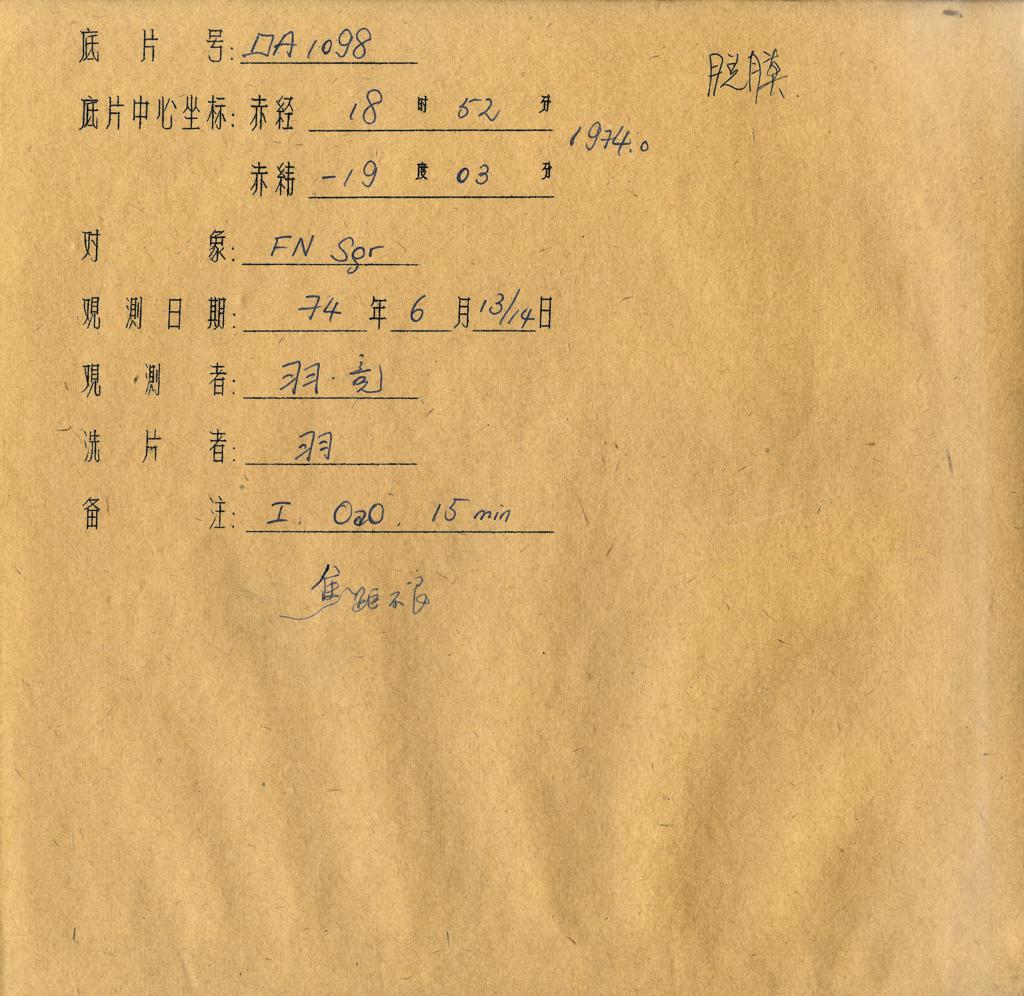 底片号: DA1098
脱膜.
底片中心坐标: 赤经 18 时 52 分
1974.0
赤纬 -19 度 03 分
对象: FN Sgr
观测日期: 74 年 6 月 13/14 日
观测者: 羽·亮
洗片者: 羽
备注: I. OaO. 15 min
焦距不良